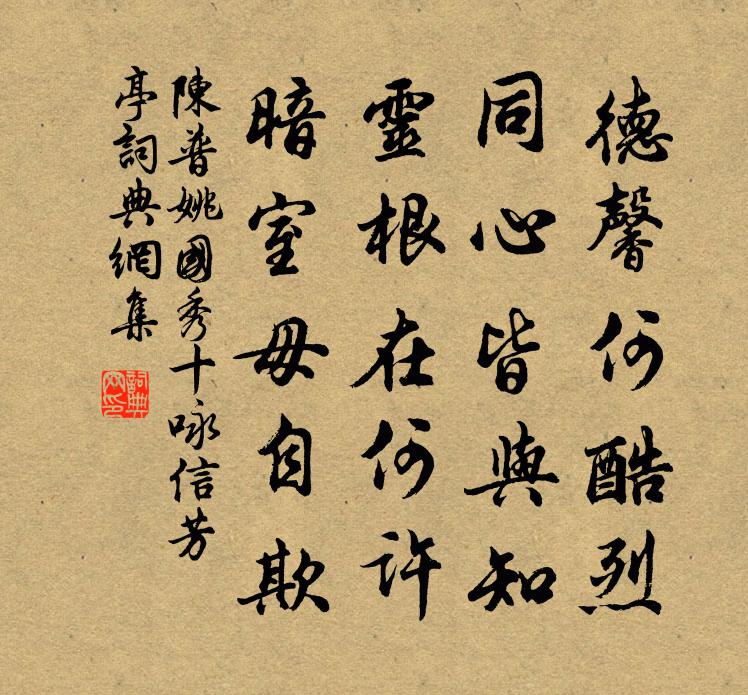 德馨何酷烈
同心皆與知
靈根在何許
暗室毋自欺
陳普姚國秀十咏信芳
亭詞典網集
詞典
網印